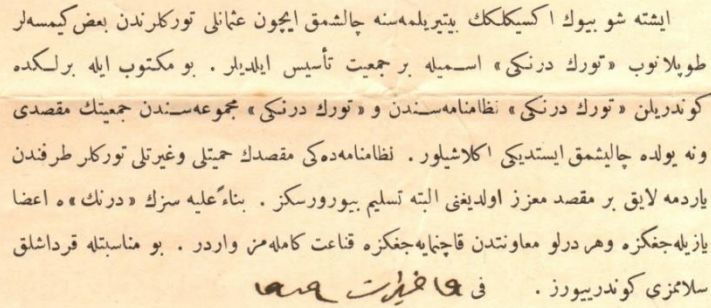 ایشته شو بیوك اكسیكلكك بیتیریلمه‌سنه چالشمق ایچون عثمانلی توركلرندن بعض كیمسه‌لر
طوپلانوب «تورك درنكی» اسـمیله بر جمعیت تأسیس ایلدیلر . بو مكتوب ایله برلكده
كوندریلن «تورك درنكی» نظامنامه‌سـندن و «تورك درنكی» مجموعه‌سـندن جمعیتك مقصدی
و نه یولده چالیشمق ایستدیكی اكلاشیلور . نظامنامه‌ده‌كی مقصدك حمیتلی وغیرتلی توركلر طرفندن
یاردمه لایق بر مقصد معزز اولدیغنی البته تسلیم بیورورسكز . بناءً علیه سزك «درنك» ه اعضا
یازیله‌جغكزه وهر درلو معاونتدن قاچنمایه‌جغكزه قناعت كامله‌مز واردر . بو مناسبتله قرداشلق
سلامزی كوندرییورز . فی ١٩ حزیران